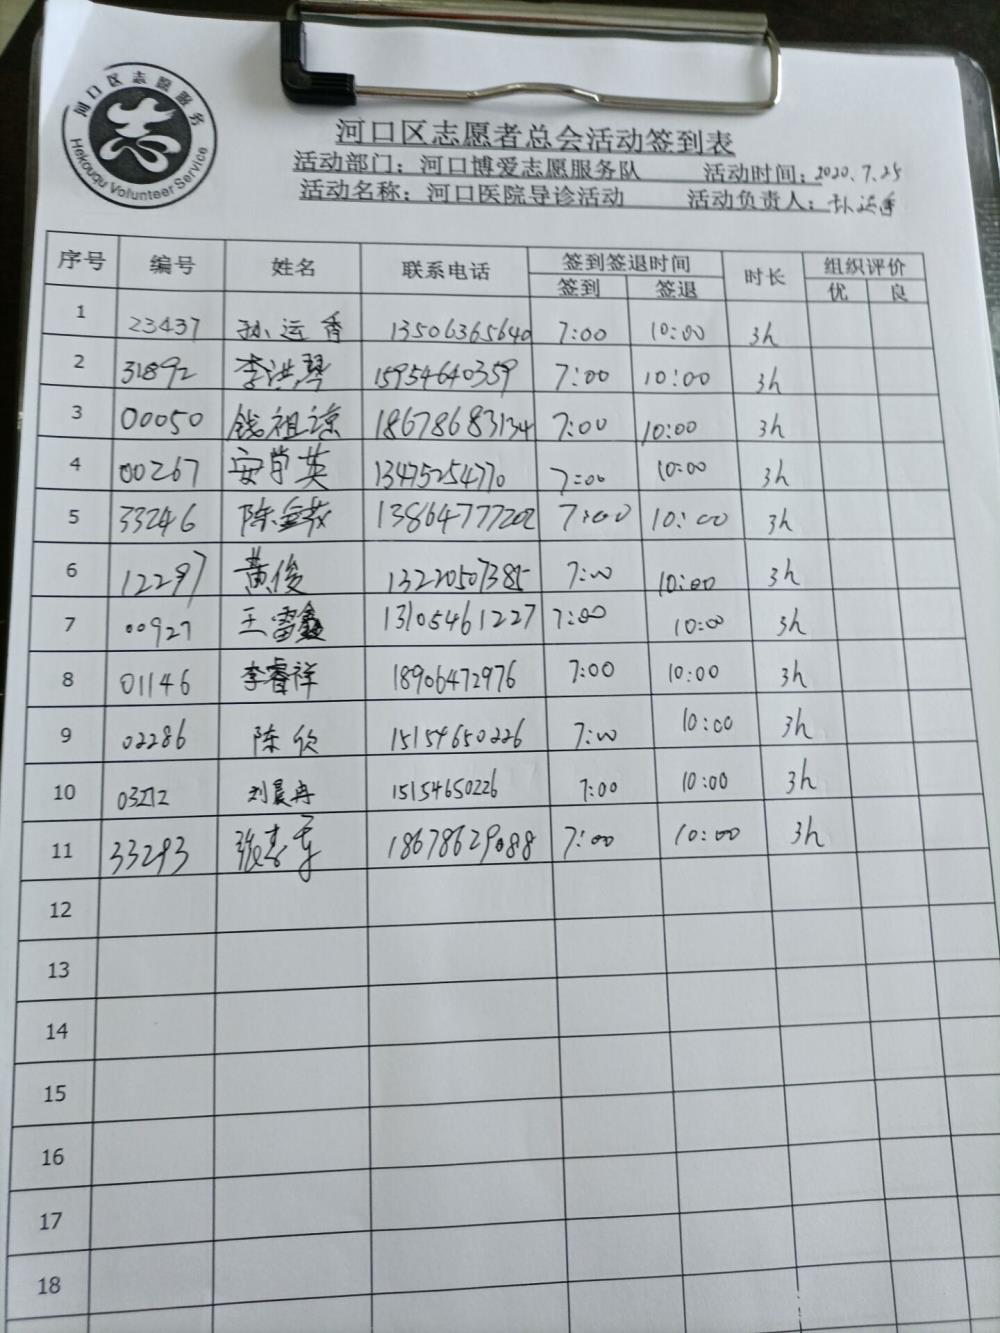 河口区志愿服务
Hekouqu Volunteer Service
河口区志愿者总会活动签到表
活动部门：河口博爱志愿服务队 活动时间：2020.7.25
活动名称：河口医院导诊活动 活动负责人：孙运香
序号 编号 姓名 联系电话 签到签退时间 时长 组织评价
签到 签退 优 良
1 23437 孙运香 13506365640 7:00 10:00 3h
2 31892 李洪琴 15954640359 7:00 10:00 3h
3 00050 钱祖谅 18678683134 7:00 10:00 3h
4 00267 安学英 13475254770 7:00 10:00 3h
5 33246 陈 13864777202 7:00 10:00 3h
6 12297 黄俊 13220507385 7:00 10:00 3h
7 00927 王雷鑫 13105461227 7:00 10:00 3h
8 01146 李睿祥 18906472976 7:00 10:00 3h
9 02286 陈欣 15154650226 7:00 10:00 3h
10 03272 刘晨冉 15154650226 7:00 10:00 3h
11 33293 张 18678629088 7:00 10:00 3h
12
13
14
15
16
17
18